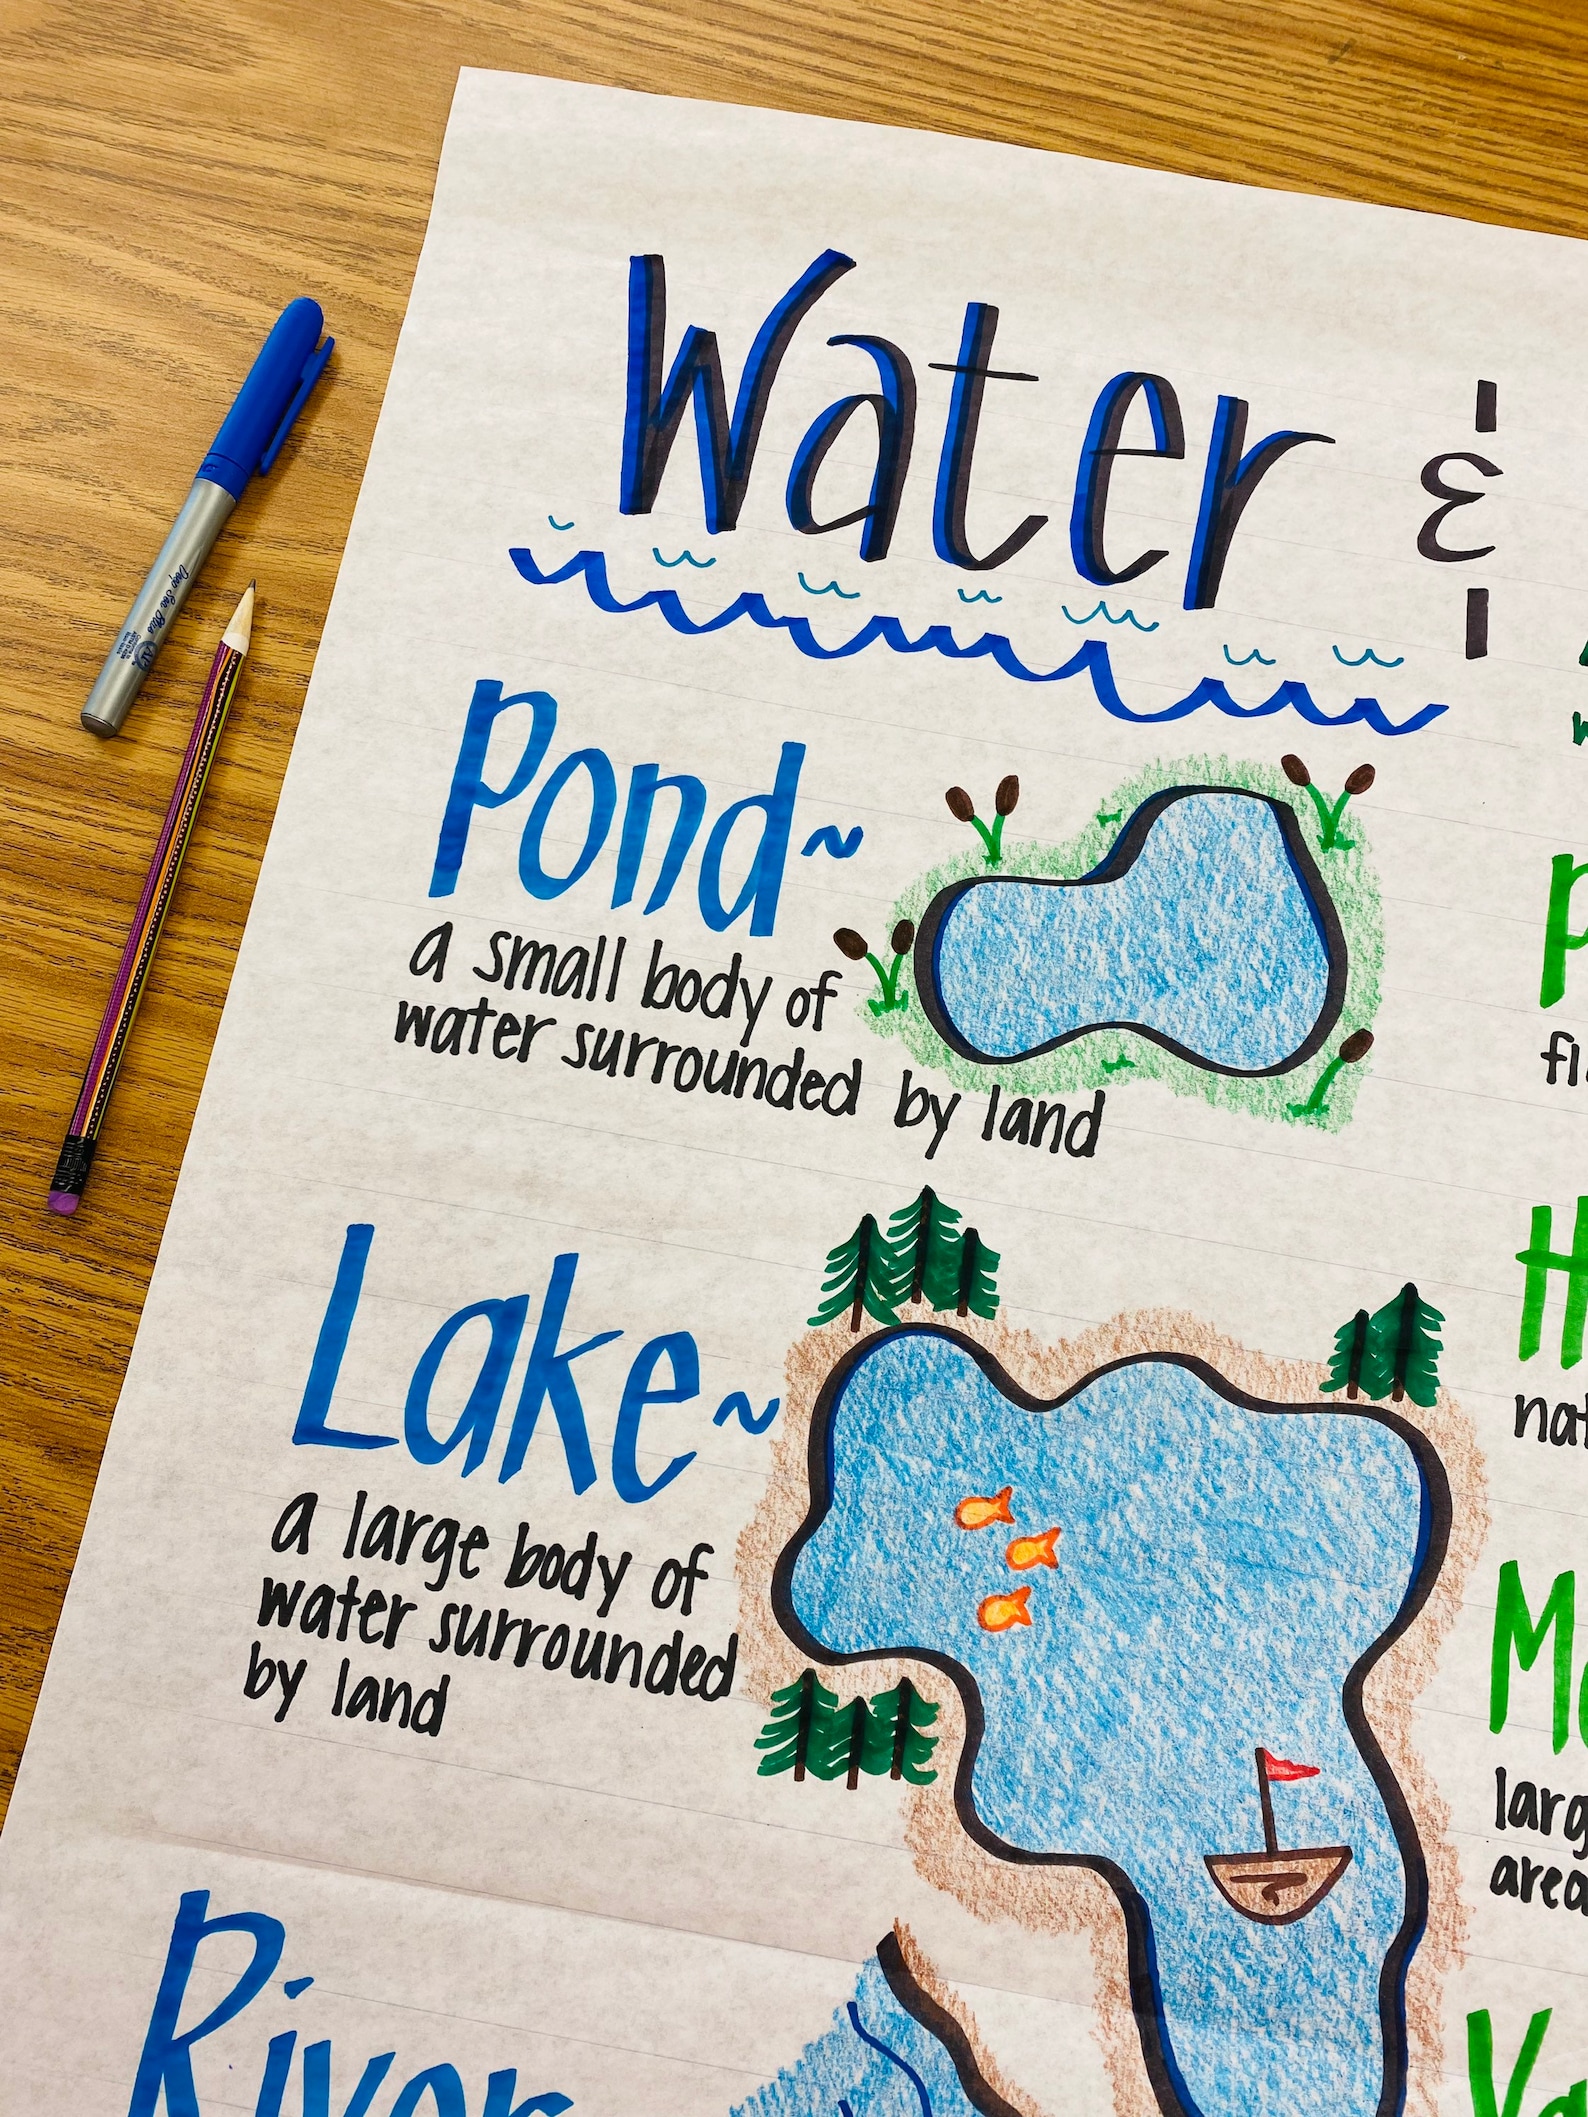 Water &
Pond~
a small body of
water surrounded by land
Lake~
a large body of
water surrounded
by land
River
Deep Sea Blue